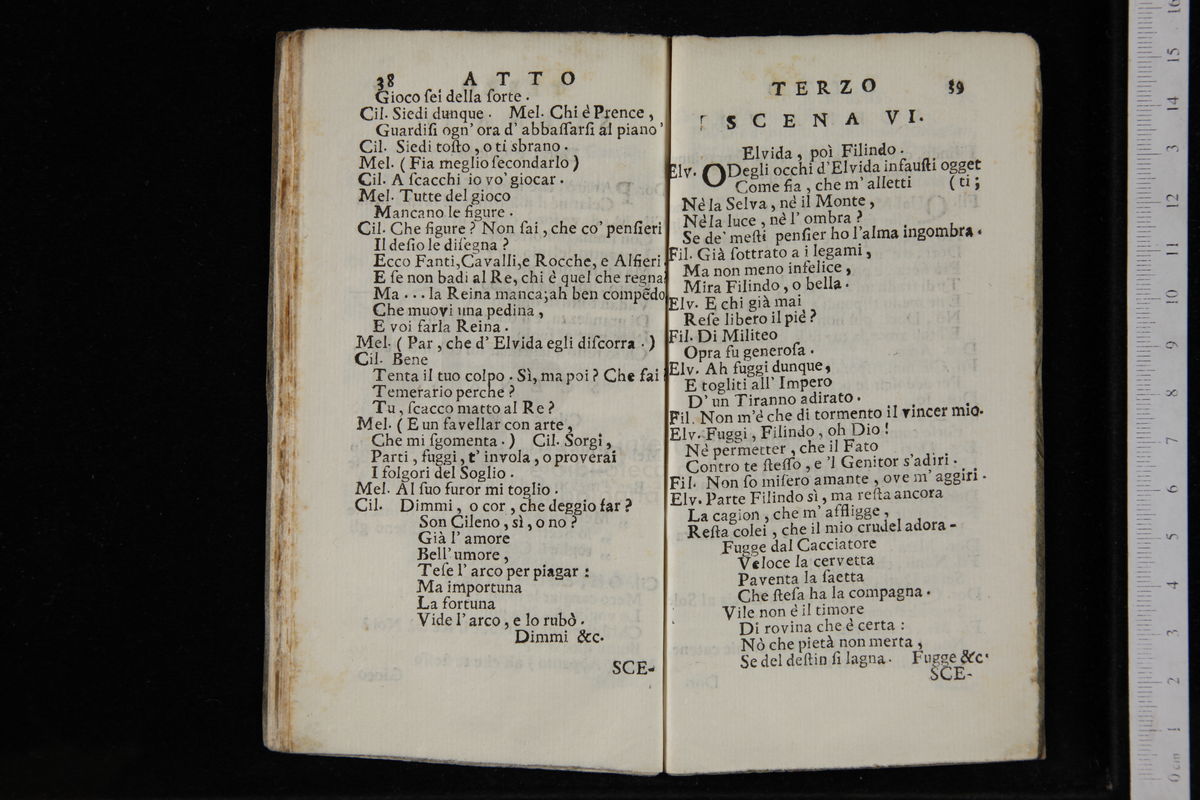 38 ATTO
Gioco ſei della ſorte.
Cil. Siedi dunque. Mel. Chi è Prence,
Guardiſi ogn' ora d' abbaſſarſi al piano
Cil. Siedi toſto, o ti sbrano.
Mel. (Fia meglio ſecondarlo)
Cil. A ſcacchi io vo' giocar.
Mel. Tutte del gioco
Mancano le figure.
Cil. Che figure? Non ſai, che co' penſieri
Il deſio le diſegna?
Ecco Fanti,Cavalli,e Rocche, e Alfieri
E ſe non badi al Re, chi è quel che regna
Ma ... la Reina manca;ah ben compẽdo
Che muovi una pedina,
E voi farla Reina.
Mel. (Par, che d' Elvida egli diſcorra.)
Cil. Bene
Tenta il tuo colpo. Sì, ma poi? Che fai
Temerario perche?
Tu, ſcacco matto al Re?
Mel. (E un favellar con arte,
Che mi ſgomenta.) Cil. Sorgi,
Parti, fuggi, t' invola, o proverai
I folgori del Soglio.
Mel. Al ſuo furor mi toglio.
Cil. Dimmi, o cor, che deggio far?
Son Cileno, sì, o no?
Già l' amore
Bell' umore,
Teſe l' arco per piagar:
Ma importuna
La fortuna
Vide l' arco, e lo rubò.
Dimmi &c.
SCE-
TERZO 39
SCENA VI.
Elvida, poì Filindo.
Elv. ODegli occhi d'Elvida infauſti ogget
Come fia, che m' alletti (ti;
Nè la Selva, nè il Monte,
Nè la luce, nè l' ombra?
Se de' meſti penſier ho l'alma ingombra.
Fil. Già ſottrato a i legami,
Ma non meno infelice,
Mira Filindo, o bella.
Elv. E chi già mai
Reſe libero il piè?
Fil. Di Militeo
Opra fu generoſa.
Elv. Ah fuggi dunque,
E togliti all' Impero
D' un Tiranno adirato.
Fil. Non m'è che di tormento il vincer mio.
Elv. Fuggi, Filindo, oh Dio!
Nè permetter, che il Fato
Contro te ſteſſo, e 'l Genitor s'adiri.
Fil. Non ſo miſero amante, ove m' aggiri.
Elv. Parte Filindo sì, ma reſta ancora
La cagion, che m' affligge,
Reſta colei, che il mio crudel adora-
Fugge dal Cacciatore
Veloce la cervetta
Paventa la ſaetta
Che ſteſa ha la compagna.
Vile non è il timore
Di rovina che è certa:
Nò che pietà non merta,
Se del deſtin ſi lagna. Fugge &c.
SCE-
0 cm 1 2 3 4 5 6 7 8 9 10 11 12 13 14 15 16